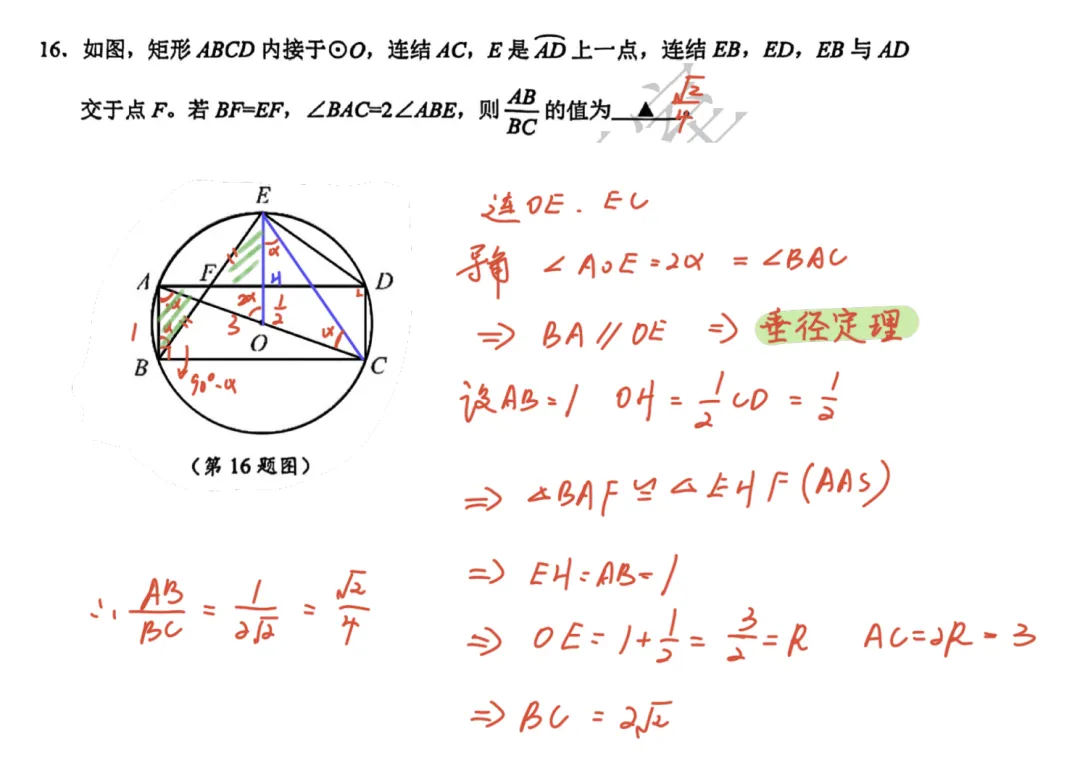 16. 如图，矩形ABCD内接于⊙O，连结AC，E是⌒AD上一点，连结EB，ED，EB与AD
交于点F。若BF=EF，∠BAC=2∠ABE，则AB/BC的值为 ▲ √2/4
E
A
F
H
D
α
2α
1/2
2α
α
1
3
O
α
B
C
90°-α
（第16题图）
连OE. EC
导角 ∠AOE=2α =∠BAC
⇒ BA∥OE ⇒ 垂径定理
设AB=1 OH=1/2CD=1/2
⇒ △BAF≌△EHF(AAS)
⇒ EH=AB=1
⇒ OE=1+1/2=3/2=R AC=2R=3
⇒ BC=2√2
∴ AB/BC=1/2√2=√2/4